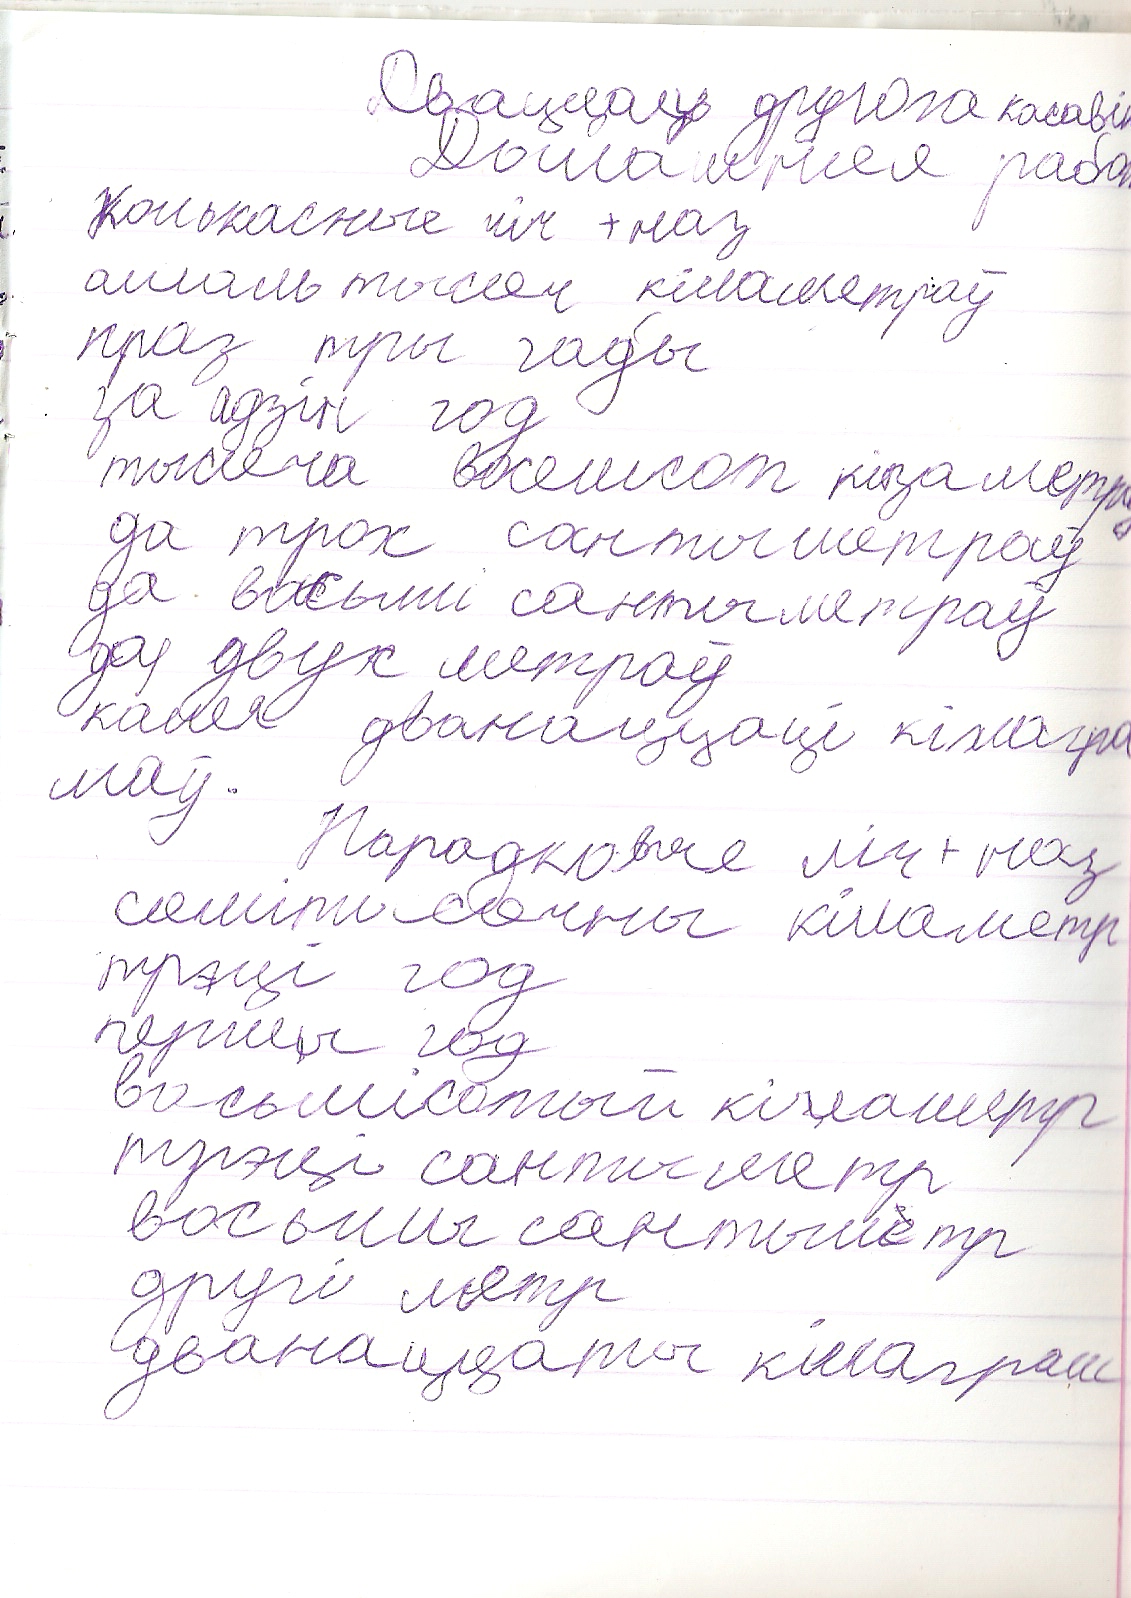 Дваццаць другога касавік
Дамашняя рабо
Колькасныя ліч + наз
амаль тысяч кіламетраў
праз тры гады
за адзін год
тысяча восемсот кіламетра
да трох сантыметраў
да васьмі сантыметраў
да двух метраў
каля дванаццаці кілагра
маў.
Парадковые ліч + наз
самітысячны кіламетр
трэці год
першы год
васьмісотый кіламетр
трэці сантыметр
восьмы сантыметр
другі метр
дванаццаты кілаграм